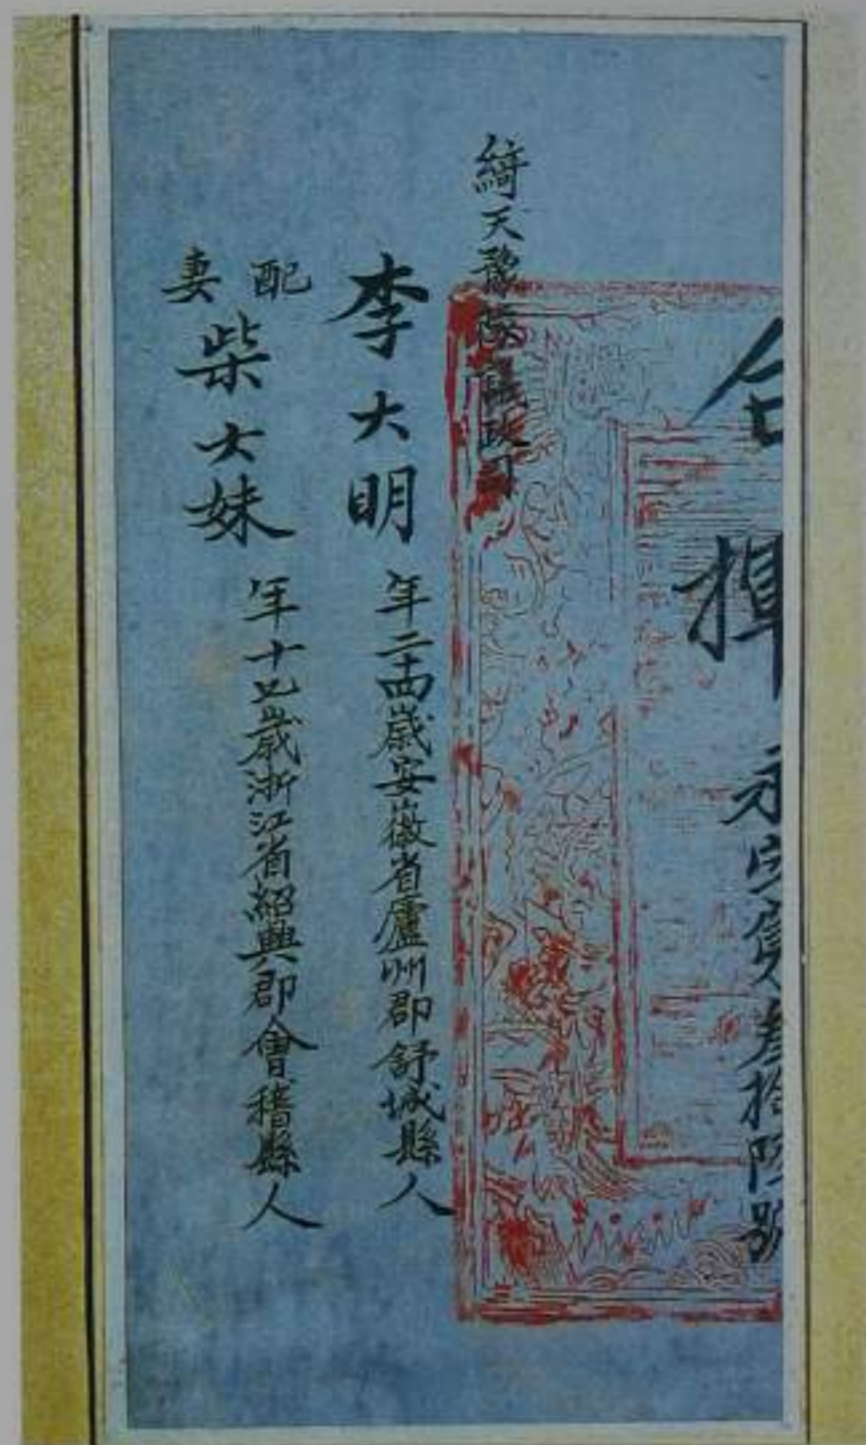 合揮
永字寶叁拾陸號
綺天豫
李大明 年二十四歲安徽省廬州郡舒城縣人
配妻 柴大妹 年十七歲浙江省紹興郡會稽縣人